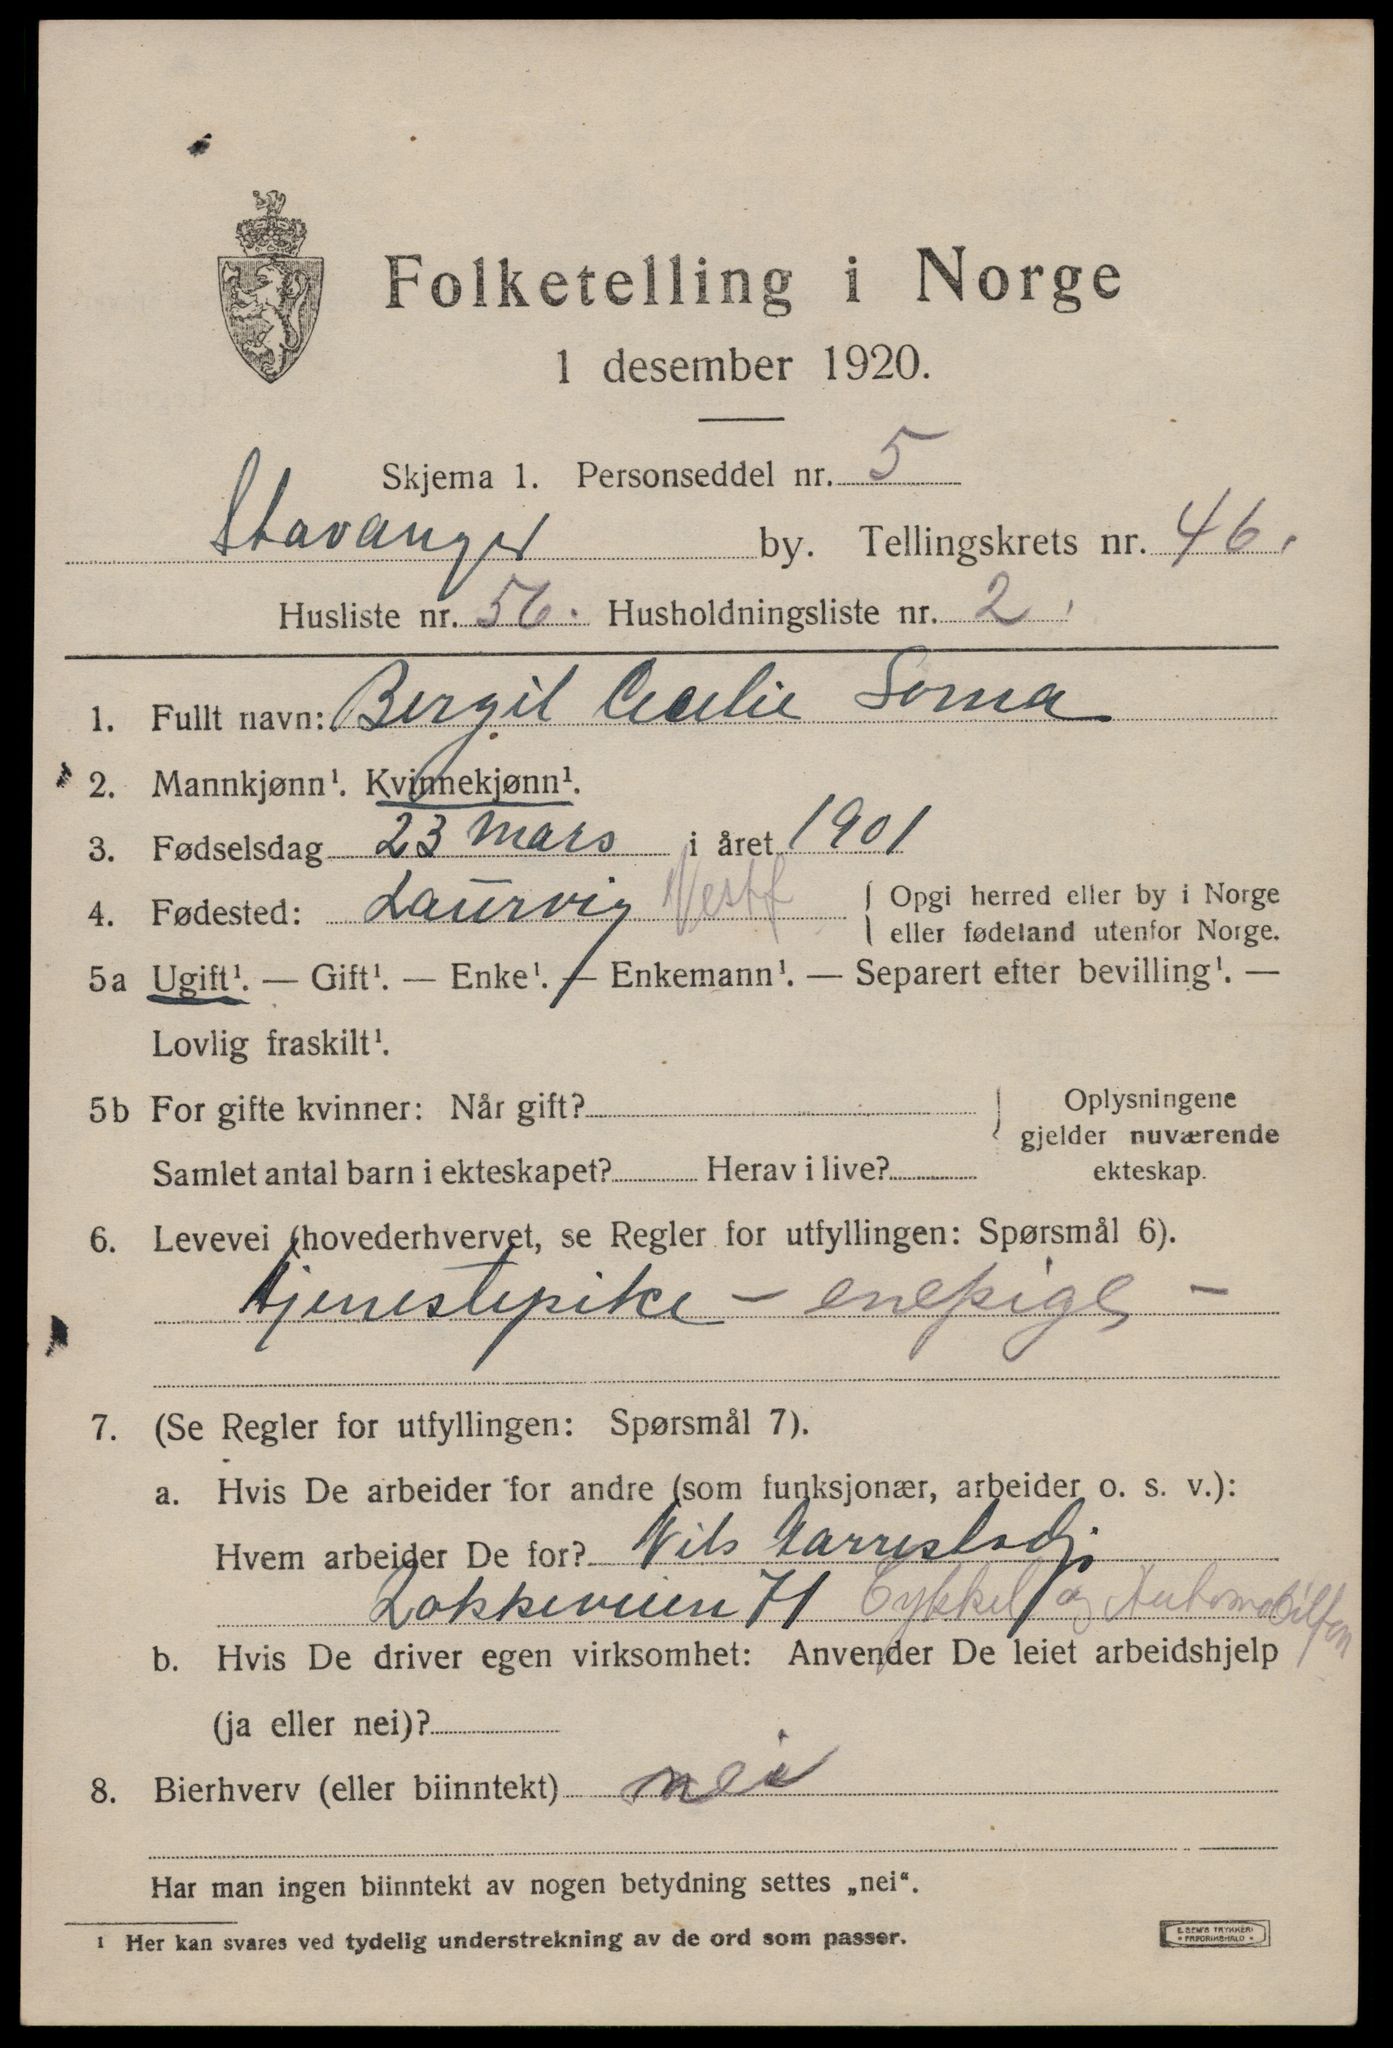 Folketelling i Norge
1 desember 1920.
Skjema 1. Personseddel nr. 5
Stavanger by. Tellingskrets nr. 46.
Husliste nr. 56. Husholdningsliste nr. 2.
1. Fullt navn: Bergit Cecelie Soma
2. Mannkjønn¹. Kvinnekjønn¹.
3. Fødselsdag 23 Mars i året 1901
4. Fødested: Laurvig Vestf { Opgi herred eller by i Norge
eller fødeland utenfor Norge.
5a Ugift¹. — Gift¹. — Enke¹. — Enkemann¹. — Separert efter bevilling¹. —
Lovlig fraskilt¹.
5b For gifte kvinner: Når gift? Oplysningene
gjelder nuværende
Samlet antal barn i ekteskapet? Herav i live? ekteskap.
6. Levevei (hovederhvervet, se Regler for utfyllingen: Spørsmål 6).
tjenestepike — enepige —
7. (Se Regler for utfyllingen: Spørsmål 7).
a. Hvis De arbeider for andre (som funksjonær, arbeider o. s. v.):
Hvem arbeider De for? Nils
Løkkeveien 71 Cykkel og
b. Hvis De driver egen virksomhet: Anvender De leiet arbeidshjelp
(ja eller nei)?
8. Bierhverv (eller biinntekt) nei
Har man ingen biinntekt av nogen betydning settes „nei“.
¹ Her kan svares ved tydelig understrekning av de ord som passer.
E. SEM'S TRYKKERI
• FREDRIKSHALD •